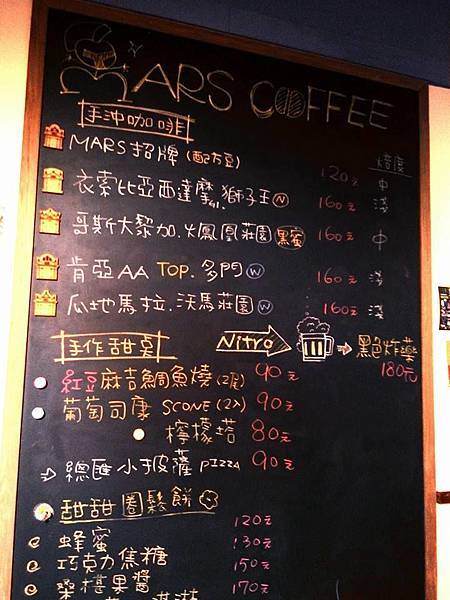 MARS COFFEE
手沖咖啡
焙度
MARS招牌(配方豆) 120元 中
衣索比亞西達摩 獅子王 N 160元 淺
哥斯大黎加.火鳳凰莊園 黑蜜 160元 中
肯亞AA TOP.多門 W 160元 淺
瓜地馬拉.沃馬莊園 W 160元 淺
手作甜點 Nitro 黑色炸藥
180元
紅豆麻吉鯛魚燒(2尾) 90元
葡萄司康 SCONE(2入) 90元
檸檬塔 80元
總匯小披薩 PIZZA 90元
甜甜圈鬆餅
120元
蜂蜜 130元
巧克力焦糖 150元
桑椹果醬 170元